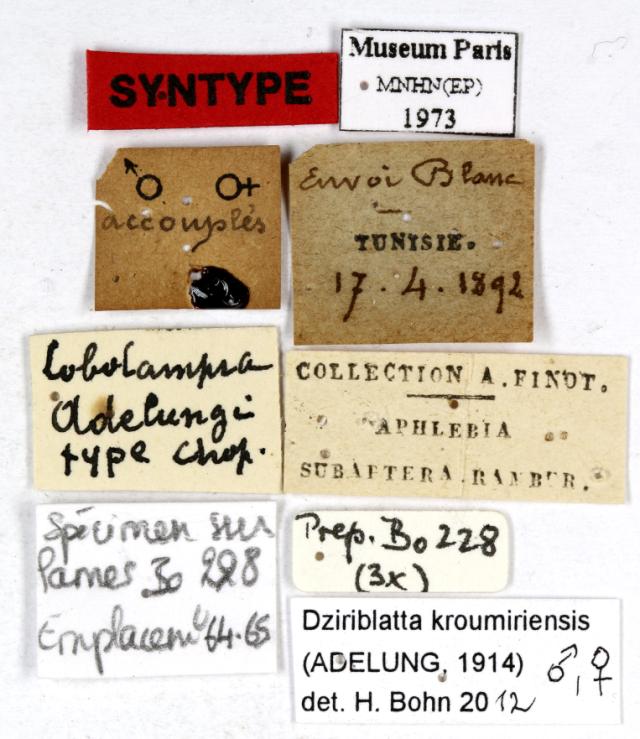 SYNTYPE
Museum Paris
MNHN(EP)
1973
♂ ♀
accouplés
Envoi Blanc
TUNISIE.
17.4.1892
Lobolampra
Adelungi
type Chop.
COLLECTION A. FINOT.
APHLEBIA
SUBAPTERA. RAMBUR.
Spécimen sur
lames Bo 228
Emplacemt 64-65
Prep. Bo 228
(3x)
Dziriblatta kroumiriensis
(ADELUNG, 1914)
det. H. Bohn 2012 ♂, ♀